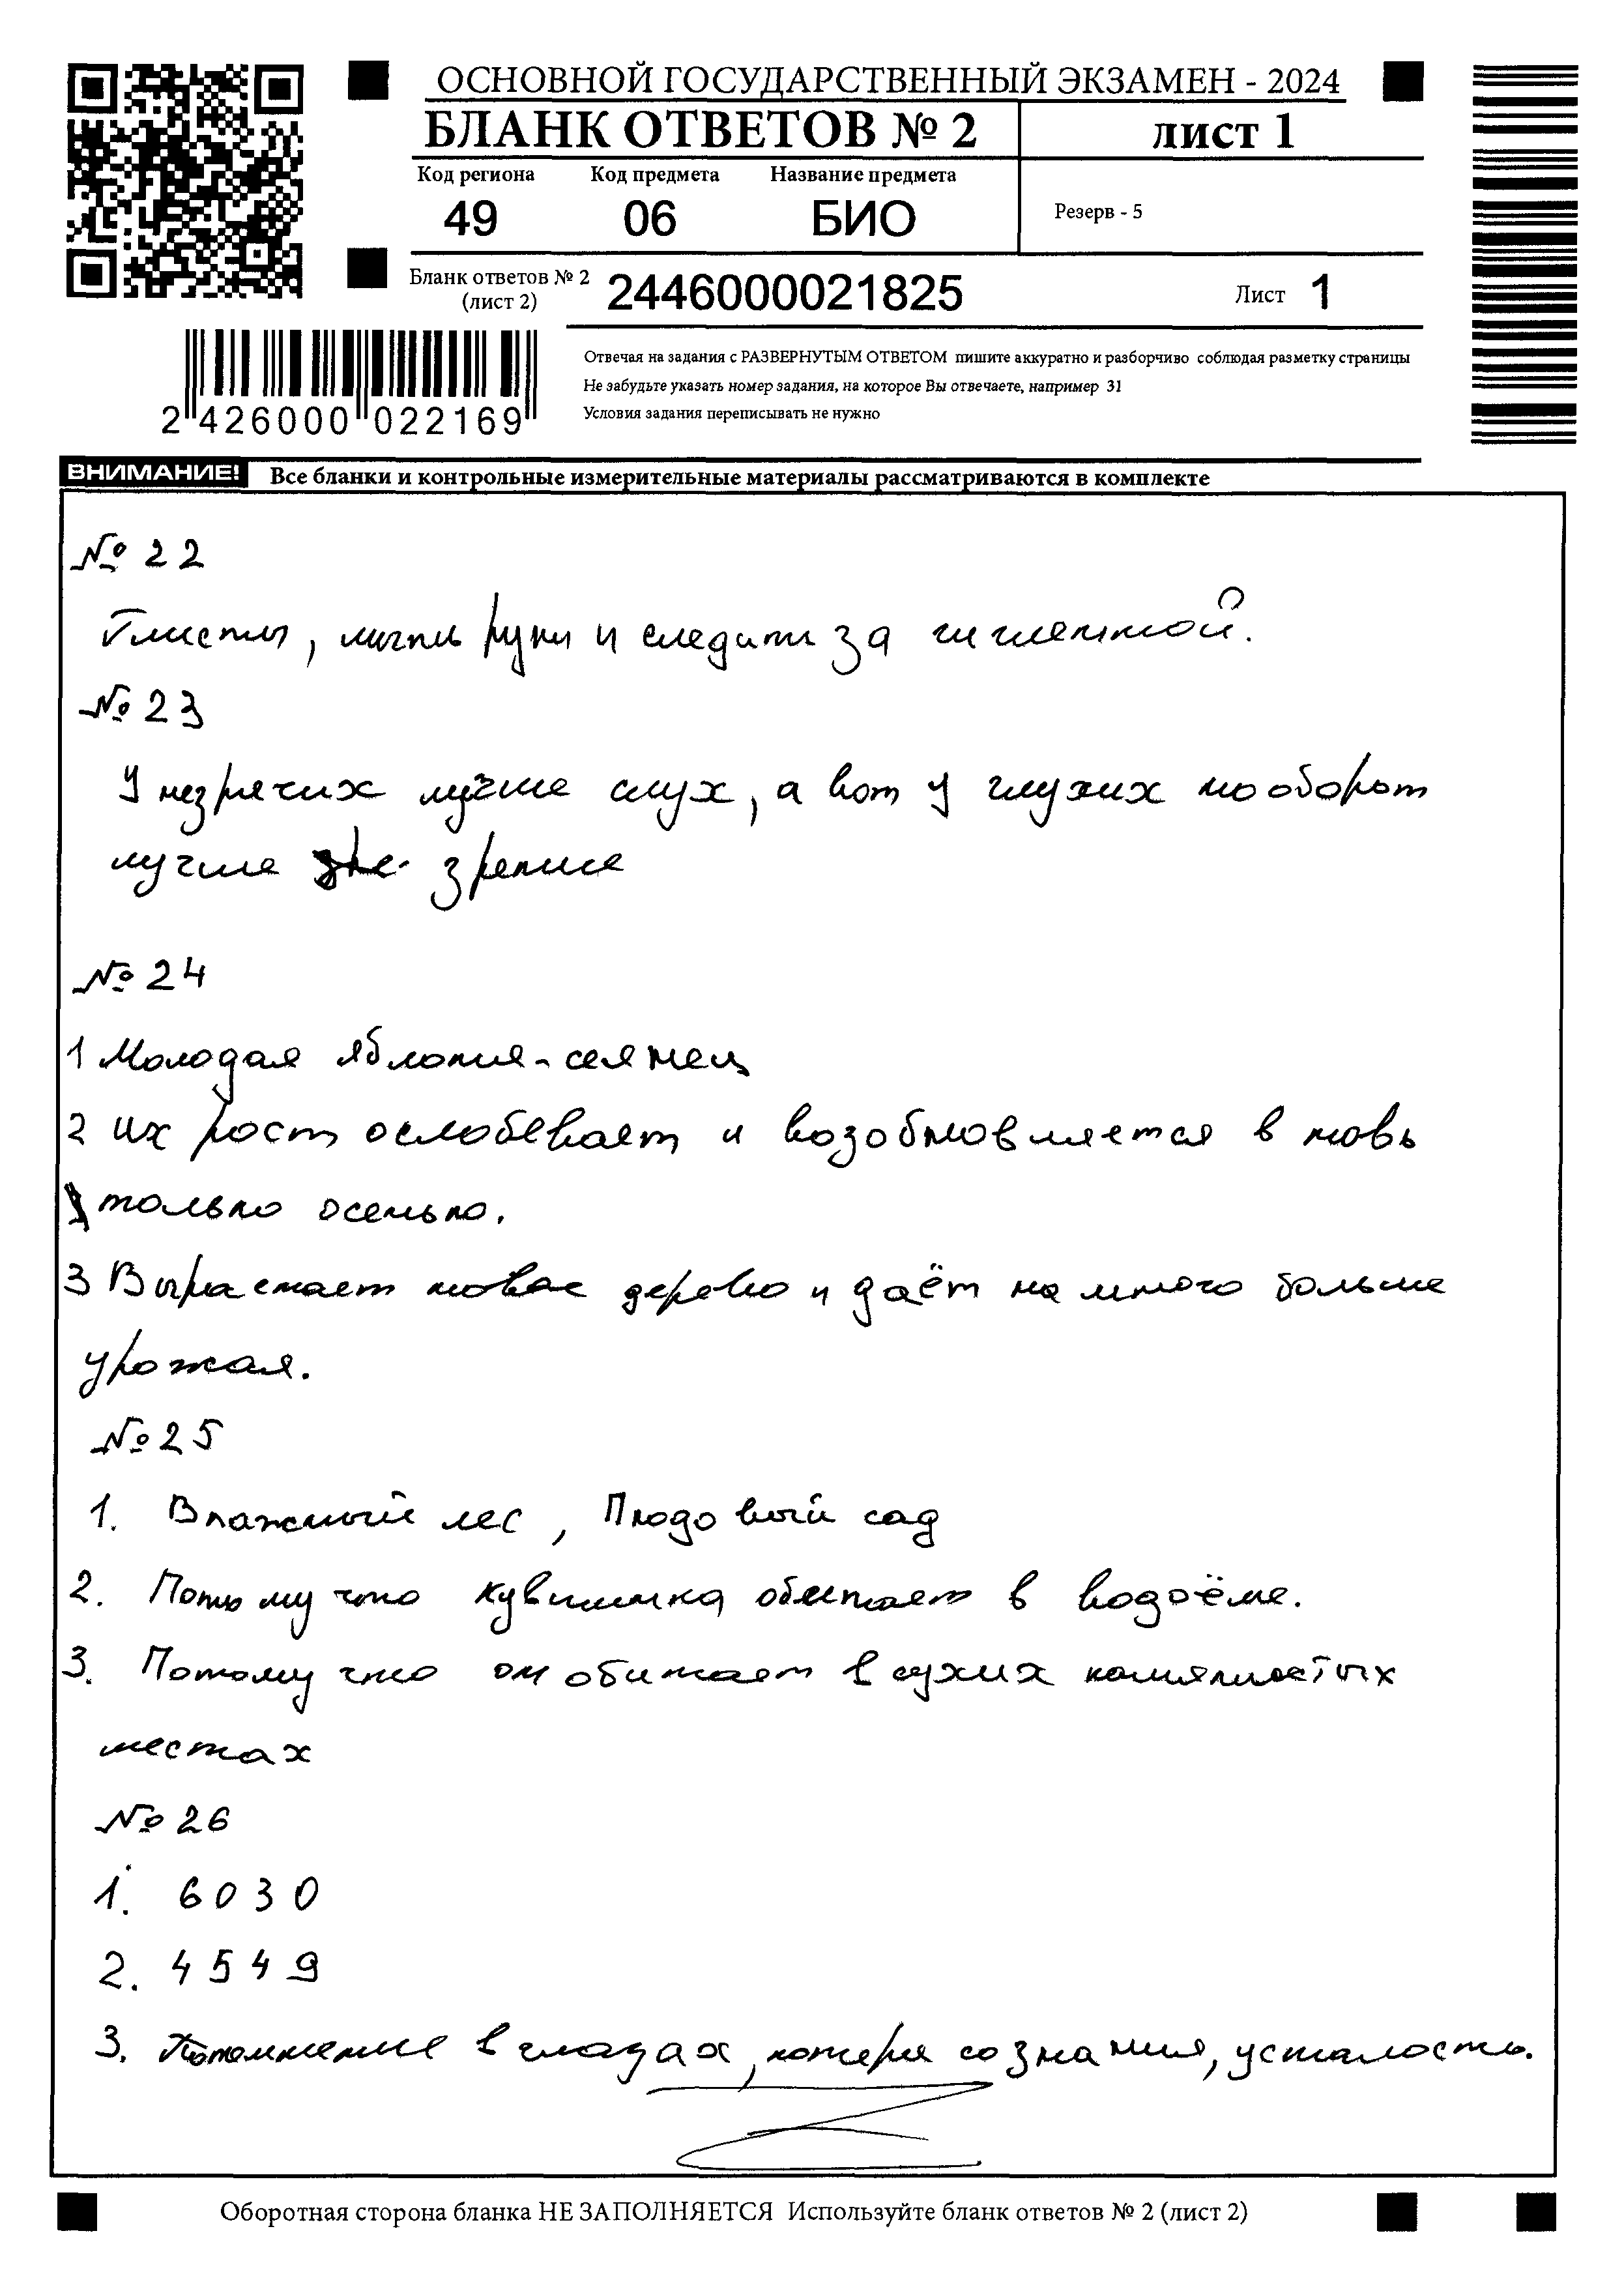 ОСНОВНОЙ ГОСУДАРСТВЕННЫЙ ЭКЗАМЕН - 2024
БЛАНК ОТВЕТОВ № 2
лист 1
Код региона Код предмета Название предмета
49 06 БИО
Резерв - 5
Бланк ответов № 2
(лист 2)
2446000021825
Лист 1
2 426000 022169
Отвечая на задания с РАЗВЕРНУТЫМ ОТВЕТОМ пишите аккуратно и разборчиво соблюдая разметку страницы
Не забудьте указать номер задания, на которое Вы отвечаете, например 31
Условия задания переписывать не нужно
ВНИМАНИЕ! Все бланки и контрольные измерительные материалы рассматриваются в комплекте
№ 22
Глисты, мыть руки и следить за гигиенной.
№ 23
У незрячих лучше слух, а вот у глухих нооборот
лучше зрение
№ 24
1 Молодая яблоня-сеянец
2 их рост ослобевает и возобновляется в новь
только осенью.
3 Вырастает новое дерево и даёт на много больше
урожая.
№ 25
1. Влажный лес, Плодовый сад
2. Потому что кувшинка обитает в водоёме.
3. Потому что он обитает в сухих каменистых
местах
№ 26
1. 6030
2. 4549
3. Потемнение в глазах, потеря сознания, усталость.
Оборотная сторона бланка НЕ ЗАПОЛНЯЕТСЯ Используйте бланк ответов № 2 (лист 2)